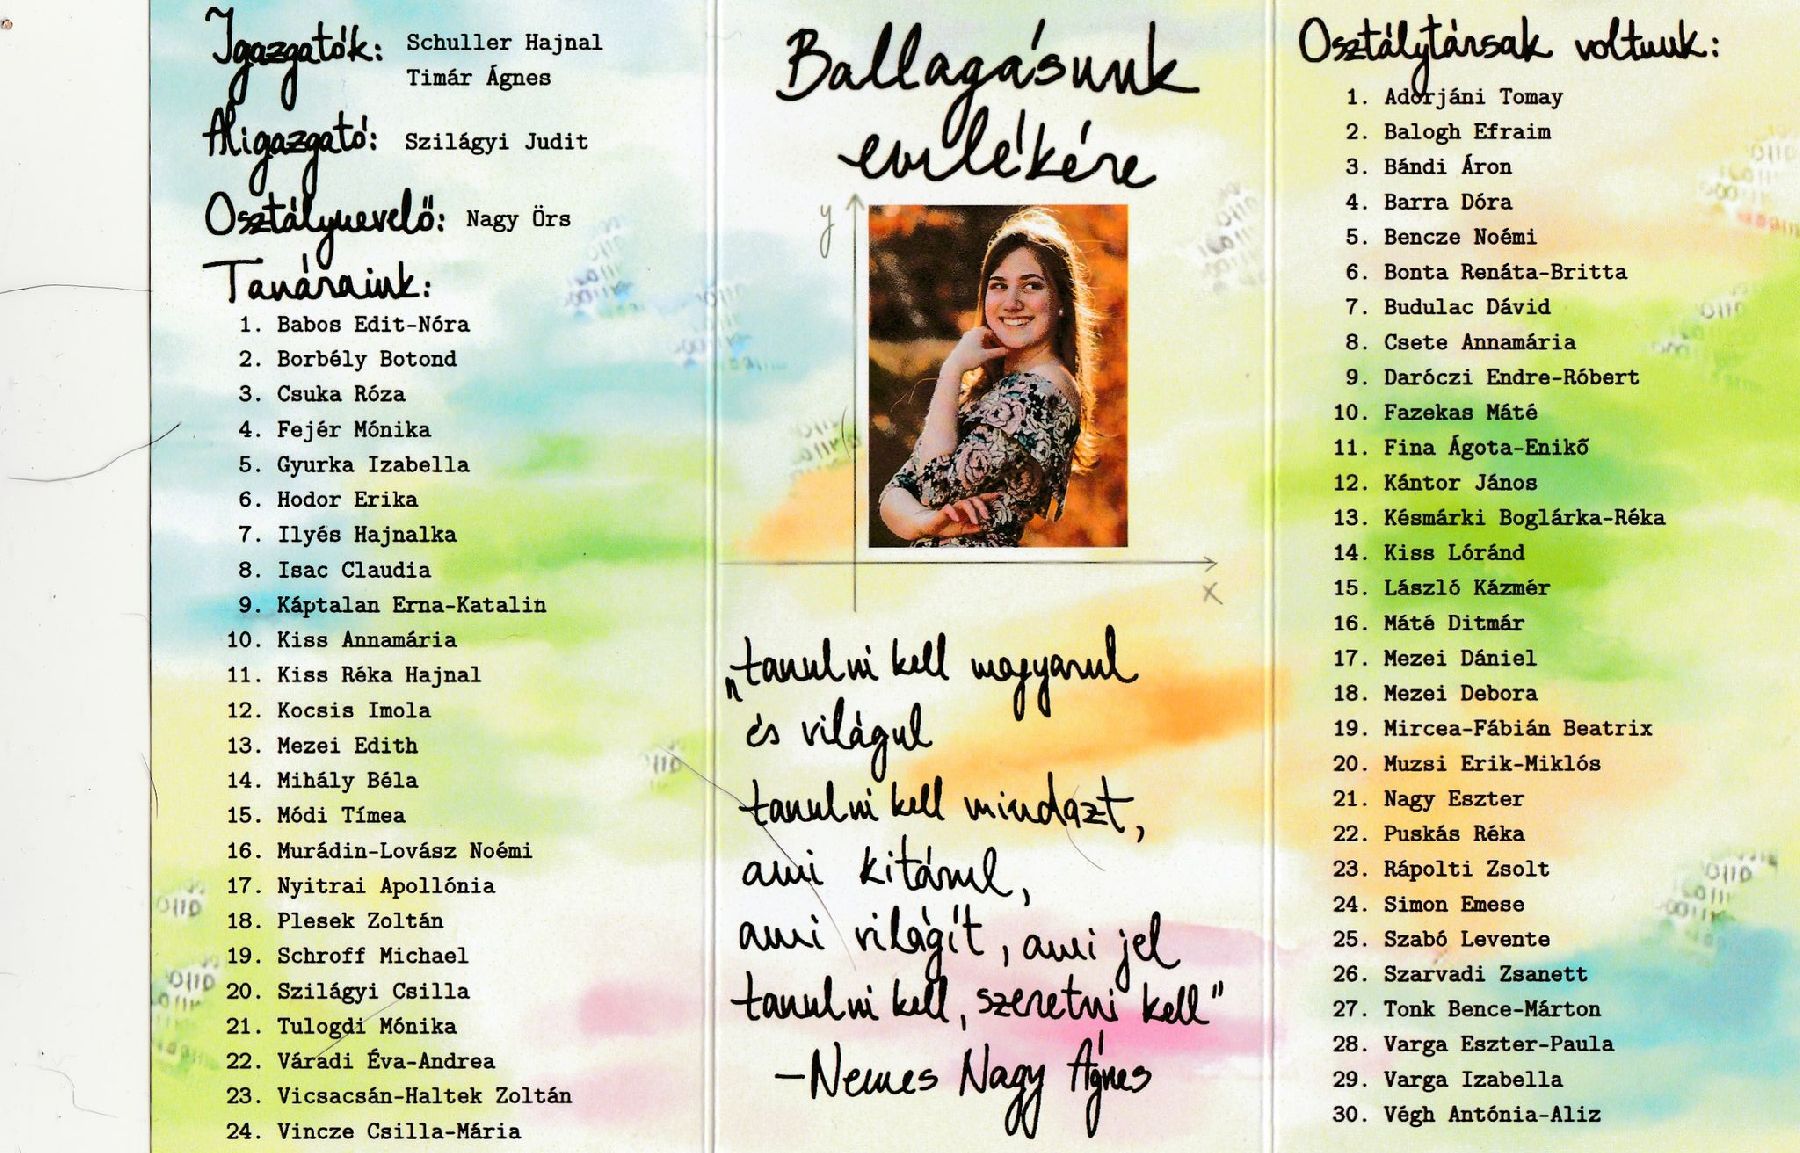 Igazgatók: Schuller Hajnal
Timár Ágnes
Aligazgató: Szilágyi Judit
Osztálynevelő: Nagy Örs
Tanáraink:
1. Babos Edit-Nóra
2. Borbély Botond
3. Csuka Róza
4. Fejér Mónika
5. Gyurka Izabella
6. Hodor Erika
7. Ilyés Hajnalka
8. Isac Claudia
9. Káptalan Erna-Katalin
10. Kiss Annamária
11. Kiss Réka Hajnal
12. Kocsis Imola
13. Mezei Edith
14. Mihály Béla
15. Módi Tímea
16. Murádin-Lovász Noémi
17. Nyitrai Apollónia
18. Plesek Zoltán
19. Schroff Michael
20. Szilágyi Csilla
21. Tulogdi Mónika
22. Váradi Éva-Andrea
23. Vicsacsán-Haltek Zoltán
24. Vincze Csilla-Mária
Ballagásunk
emlékére
y
x
„tanulni kell magyarul
és világul
tanulni kell mindazt,
ami kitárul,
ami világít, ami jel
tanulni kell, szeretni kell"
—Nemes Nagy Ágnes
Osztálytársak voltunk:
1. Adorjáni Tomay
2. Balogh Efraim
3. Bándi Áron
4. Barra Dóra
5. Bencze Noémi
6. Bonta Renáta-Britta
7. Budulac Dávid
8. Csete Annamária
9. Daróczi Endre-Róbert
10. Fazekas Máté
11. Fina Ágota-Enikő
12. Kántor János
13. Késmárki Boglárka-Réka
14. Kiss Lóránd
15. László Kázmér
16. Máté Ditmár
17. Mezei Dániel
18. Mezei Debora
19. Mircea-Fábián Beatrix
20. Muzsi Erik-Miklós
21. Nagy Eszter
22. Puskás Réka
23. Rápolti Zsolt
24. Simon Emese
25. Szabó Levente
26. Szarvadi Zsanett
27. Tonk Bence-Márton
28. Varga Eszter-Paula
29. Varga Izabella
30. Végh Antónia-Aliz